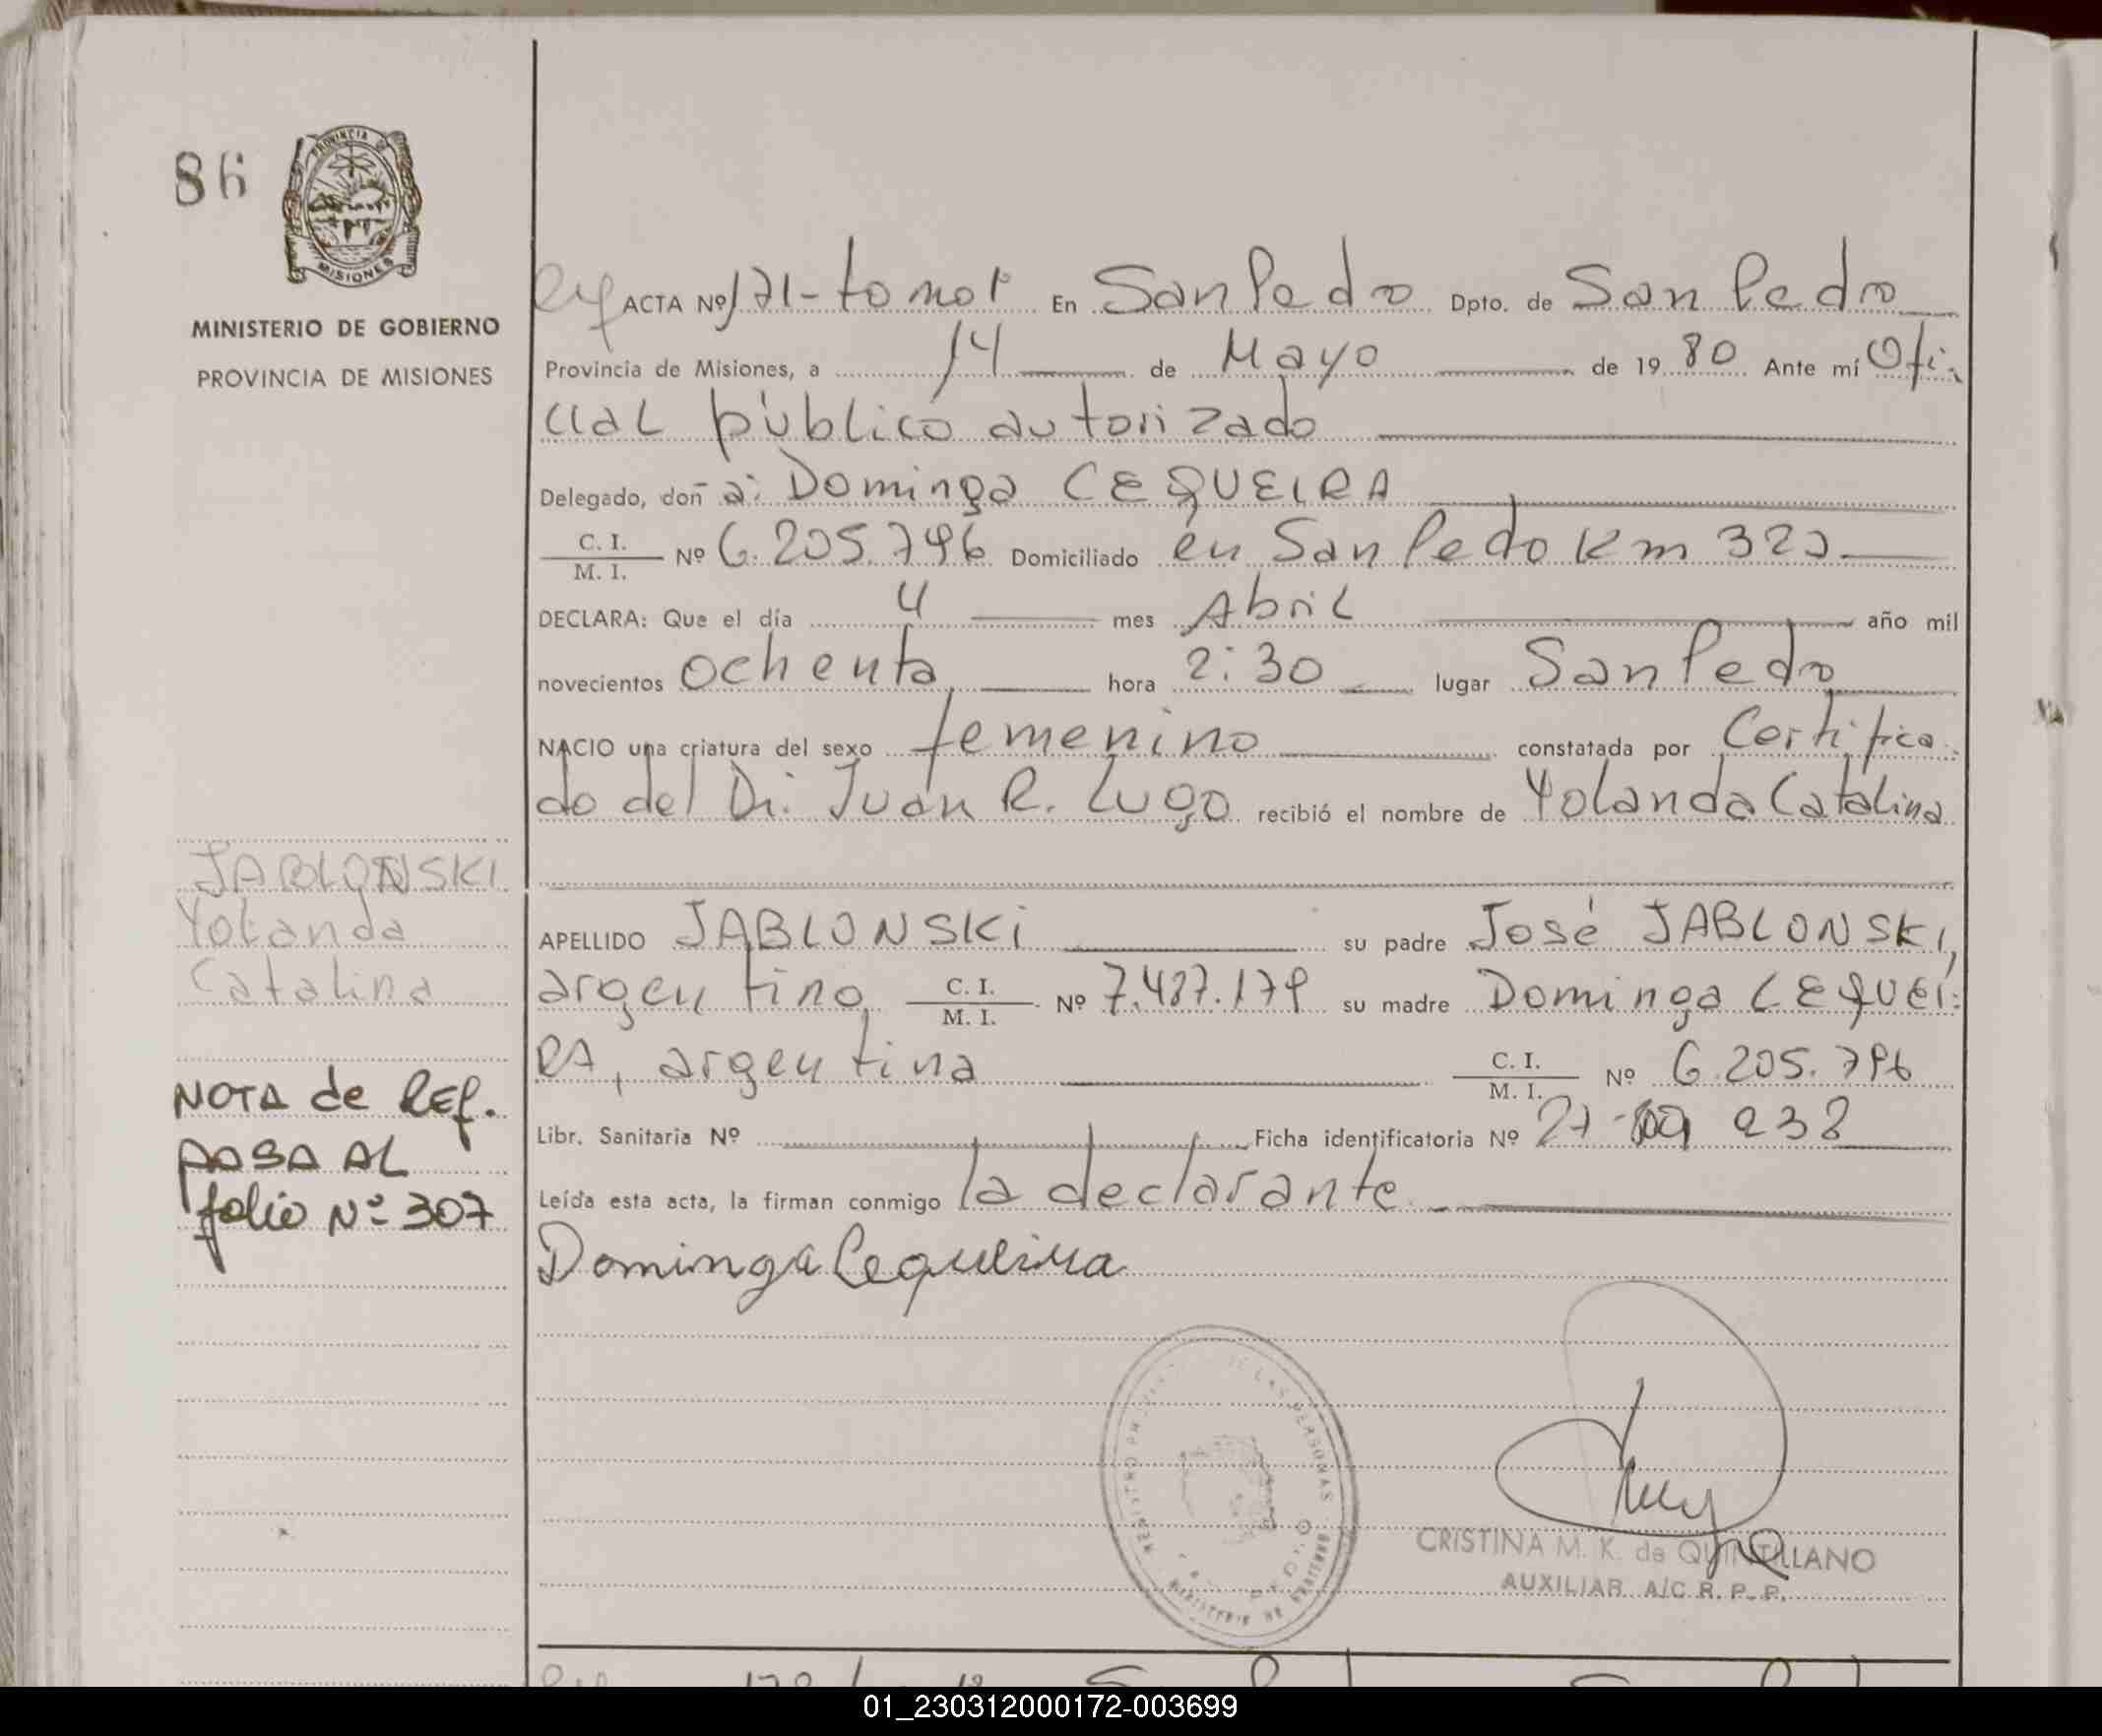 86
PROVINCIA DE
MISIONES
MINISTERIO DE GOBIERNO
PROVINCIA DE MISIONES
Ref ACTA Nº 171-tomo 1º En San Pedro Dpto. de San Pedro
Provincia de Misiones, a 14 de Mayo de 1980 Ante mí Ofi-
cial público autorizado
Delegado, doña: Dominga CEQUEIRA
C. I. / M. I. Nº 6.205.796 Domiciliado en San Pedro Km 322
DECLARA: Que el día 4 mes Abril año mil
novecientos ochenta, hora 2:30 lugar San Pedro
NACIO una criatura del sexo femenino constatada por Certifica-
do del Dr. Juan R. Lugo recibió el nombre de Yolanda Catalina
JABLONSKI
Yolanda
Catalina
APELLIDO JABLONSKi su padre José JABLONSKI,
argentino, C. I. / M. I. Nº 7.487.179 su madre Dominga CEQUEI-
RA, argentina C. I. / M. I. Nº 6.205.796
NOTA de REf.
PASA AL
folio Nº 307
Libr. Sanitaria Nº Ficha identificatoria Nº 27- 238
Leída esta acta, la firman conmigo la declarante.
Dominga Cequeira
DE LAS PERSONAS
MINISTERIO DE GOBIERNO
CRISTINA M. K. de QUINTILLANO
AUXILIAR A/C R. P. P.
01_230312000172-003699